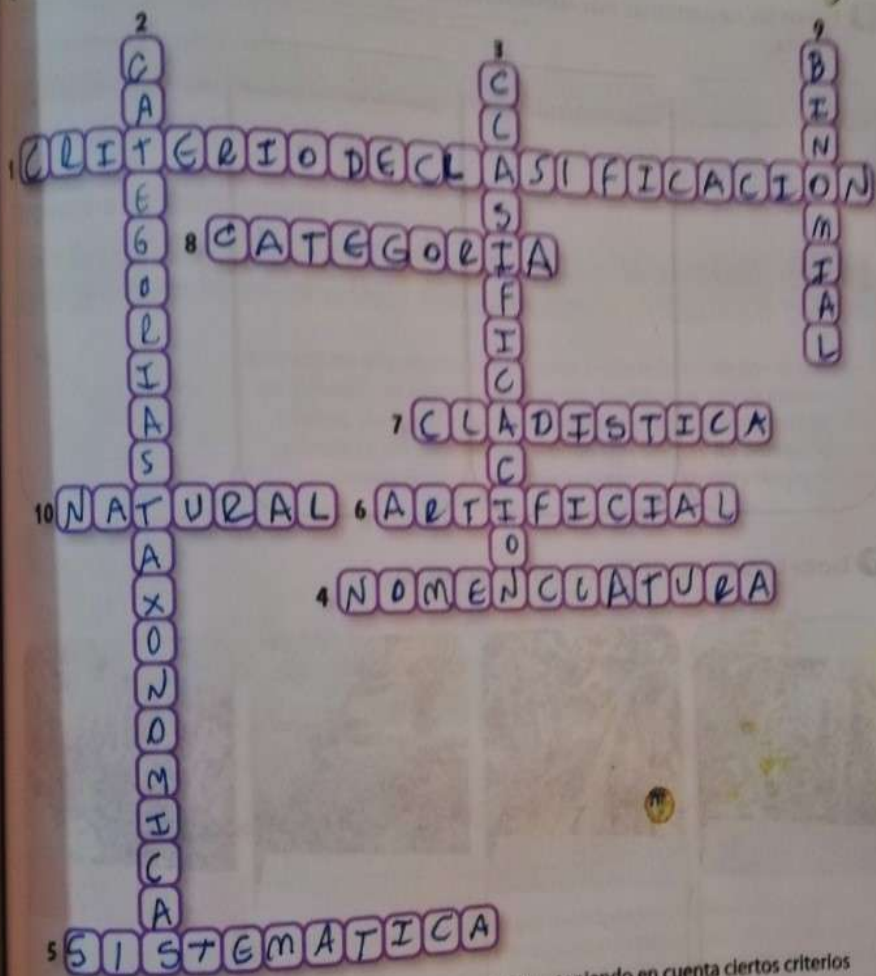 2 CATEGORIASTAXONOMICAS
3 CLASIFICACION
9 BINOMIAL
1 CRITERIODECLASIFICACION
8 CATEGORIA
7 CLADISTICA
10 NATURAL
6 ARTIFICIAL
4 NOMENCLATURA
5 SISTEMATICA
en cuenta ciertos criterios